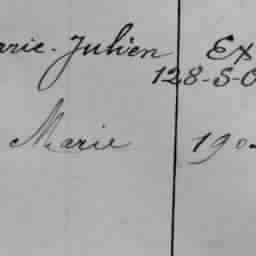 arie-Julien Ex
128-5-0
Marie 190